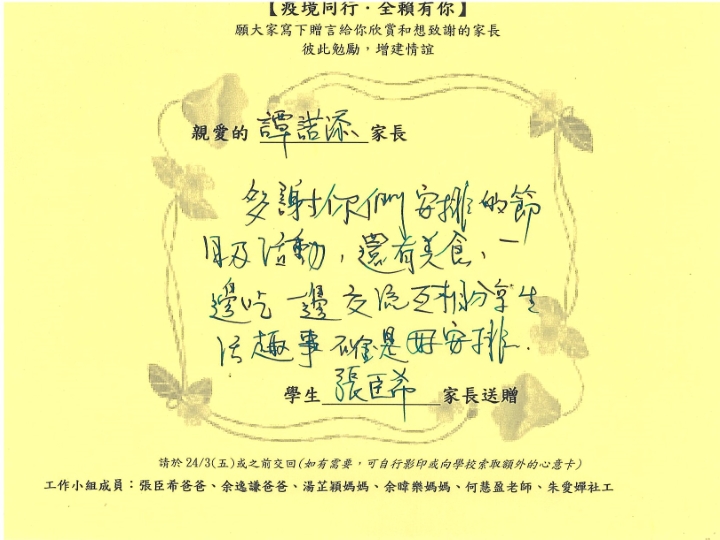 【疫境同行．全賴有你】
願大家寫下贈言給你欣賞和想致謝的家長
彼此勉勵，增建情誼
親愛的 譚諾添 家長
多謝你們安排的節
目及活動，還有美食，一
邊吃一邊交流互相分享生
活趣事確是好安排．
學生 張臣希 家長送贈
請於 24/3(五)或之前交回(如有需要，可自行影印或向學校索取額外的心意卡)
工作小組成員：張臣希爸爸、余逸謙爸爸、湯芷穎媽媽、余暐樂媽媽、何慧盈老師、朱愛嬋社工